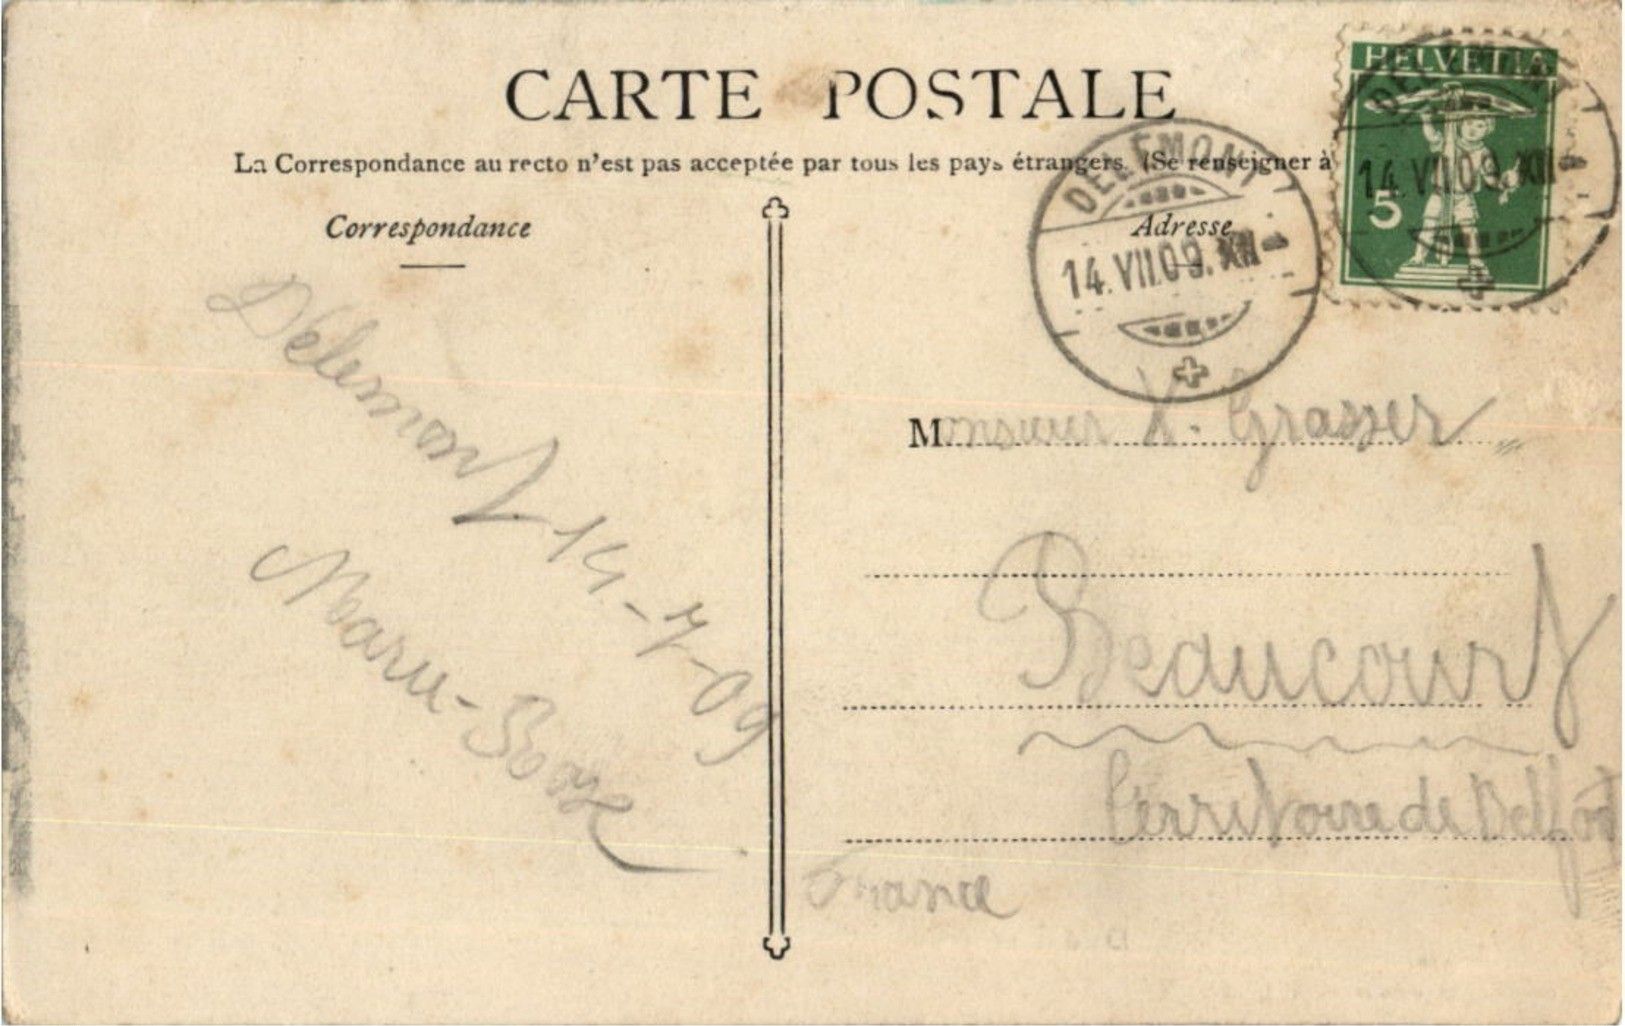 CARTE POSTALE
La Correspondance au recto n'est pas acceptée par tous les pays étrangers. (Se renseigner à
Correspondance
Adresse
HELVETIA
5
DELÉMONT
14.VII.09.XII
DELÉMONT
14.VII.09.XII
Délémont 14-7-09
Marie-Rose
Monsieur X. Grasser
Beaucourt
Territoire de Belfort
France